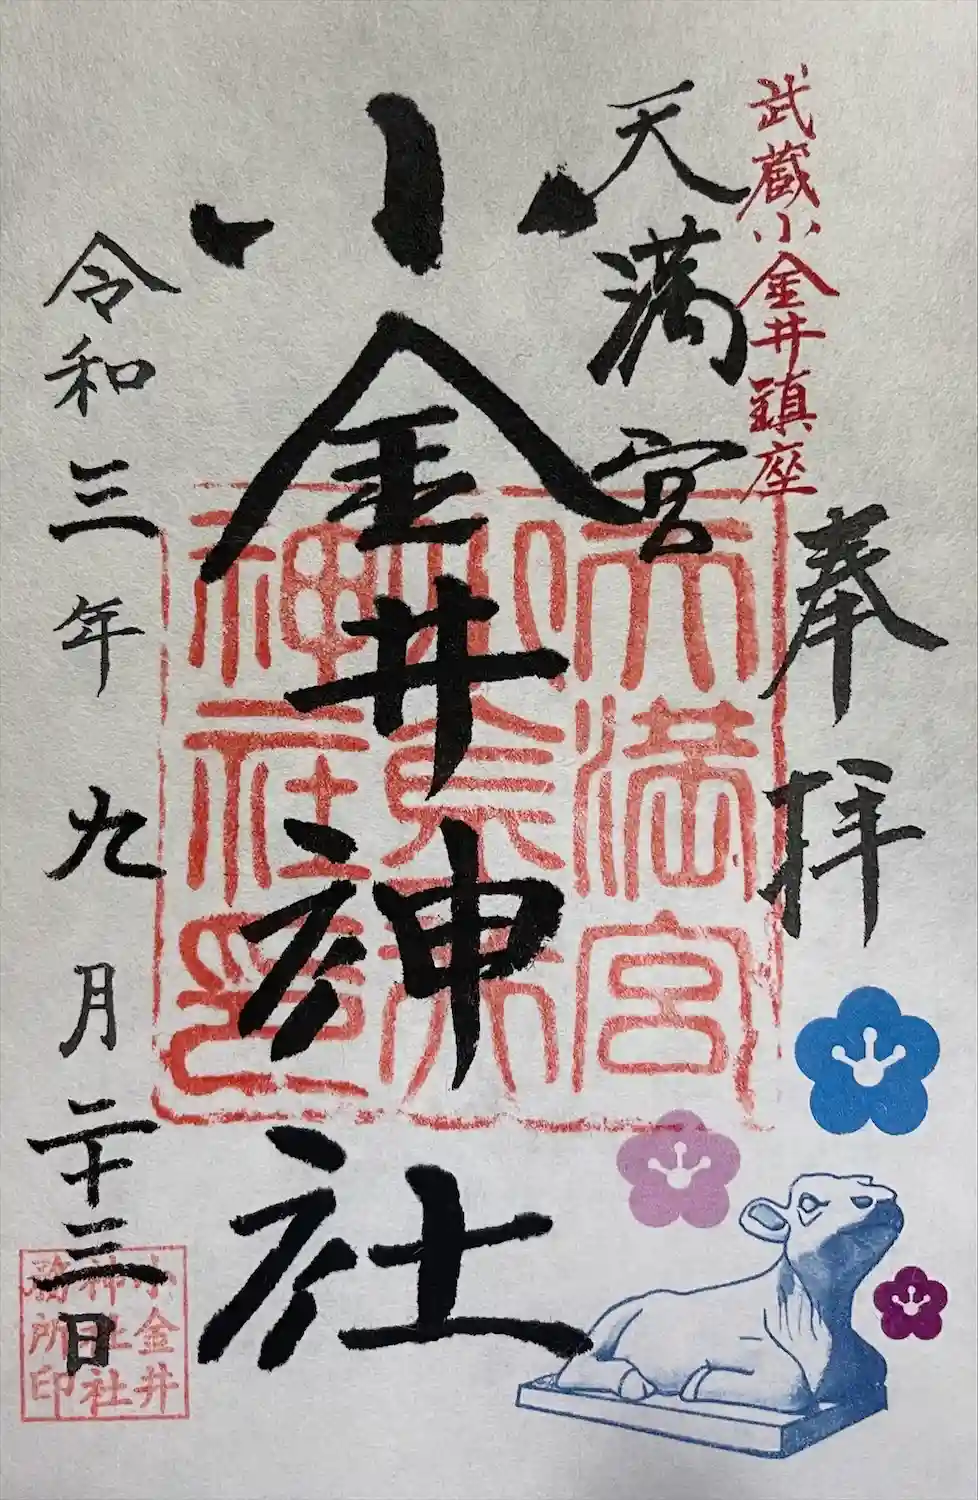 武蔵小金井鎮座
奉拝
天満宮
小金井神社
令和三年九月二十三日
天満宮
小金井
神社印
小金井
神社社
務所印